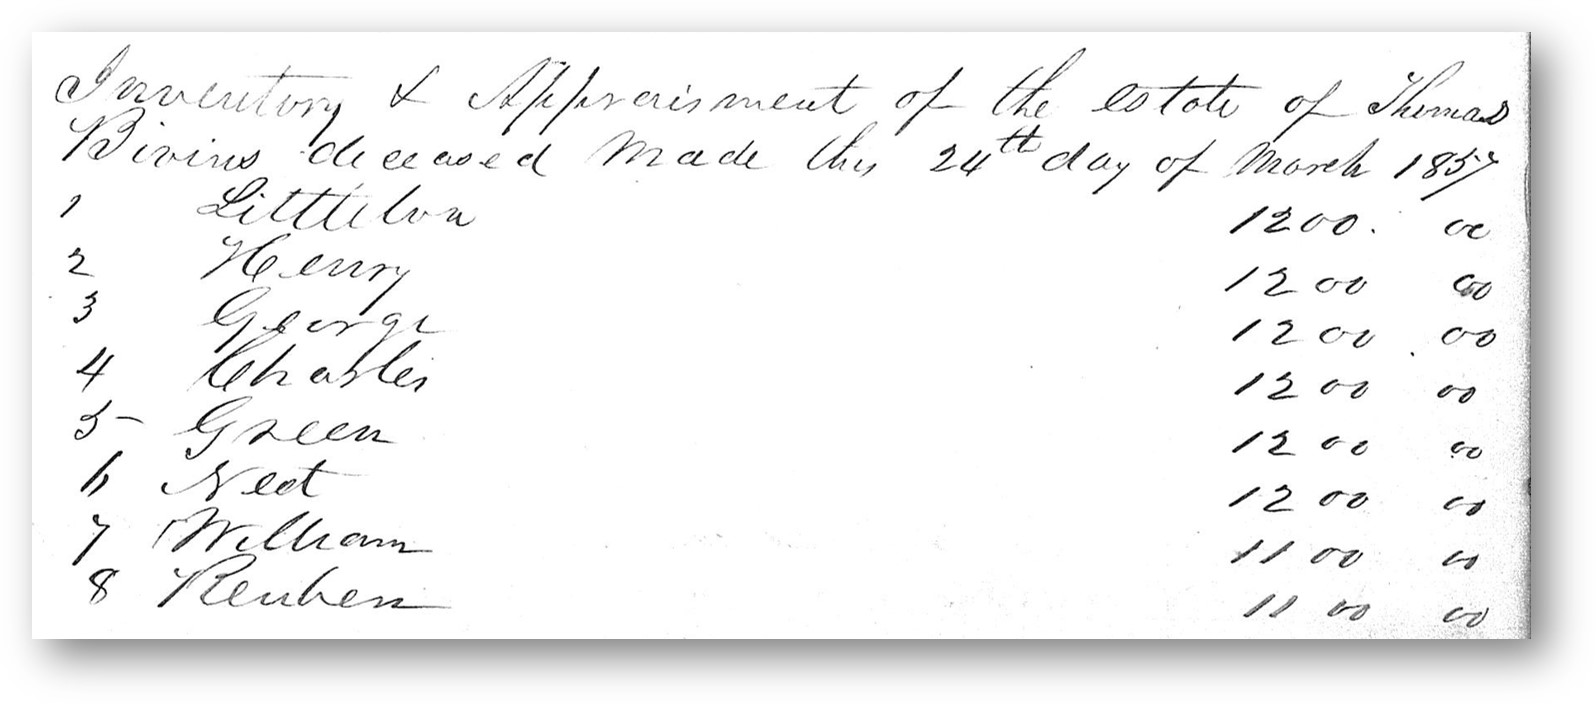 Inventory & Appraisment of the estate of Thomas
Bivins deceased Made this 24th day of March 1857
1 Littleton 1200. 00
2 Henry 1200 00
3 George 1200 00
4 Charles 1200 00
5 Green 1200 00
6 Ned 1200 00
7 William 1100 00
8 Reuben 1100 00